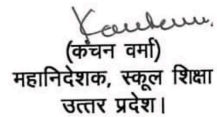 (कंचन वर्मा)
महानिदेशक, स्कूल शिक्षा
उत्तर प्रदेश।